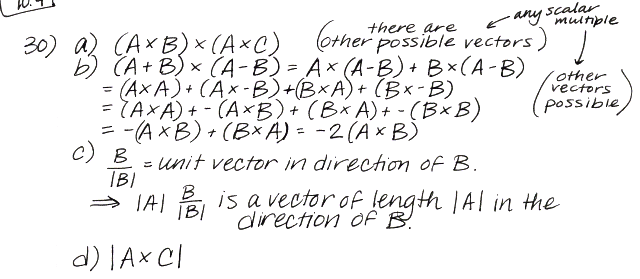 10.4
any scalar multiple
30) a) (A×B)×(A×C) (there are other possible vectors)
b) (A+B)×(A-B) = A×(A-B) + B×(A-B)
= (A×A) + (A×-B) + (B×A) + (B×-B)
= (A×A) + -(A×B) + (B×A) + -(B×B)
= -(A×B) + (B×A) = -2(A×B)
(other vectors possible)
c) B/|B| = unit vector in direction of B.
⇒ |A| B/|B| is a vector of length |A| in the
direction of B.
d) |A×C|